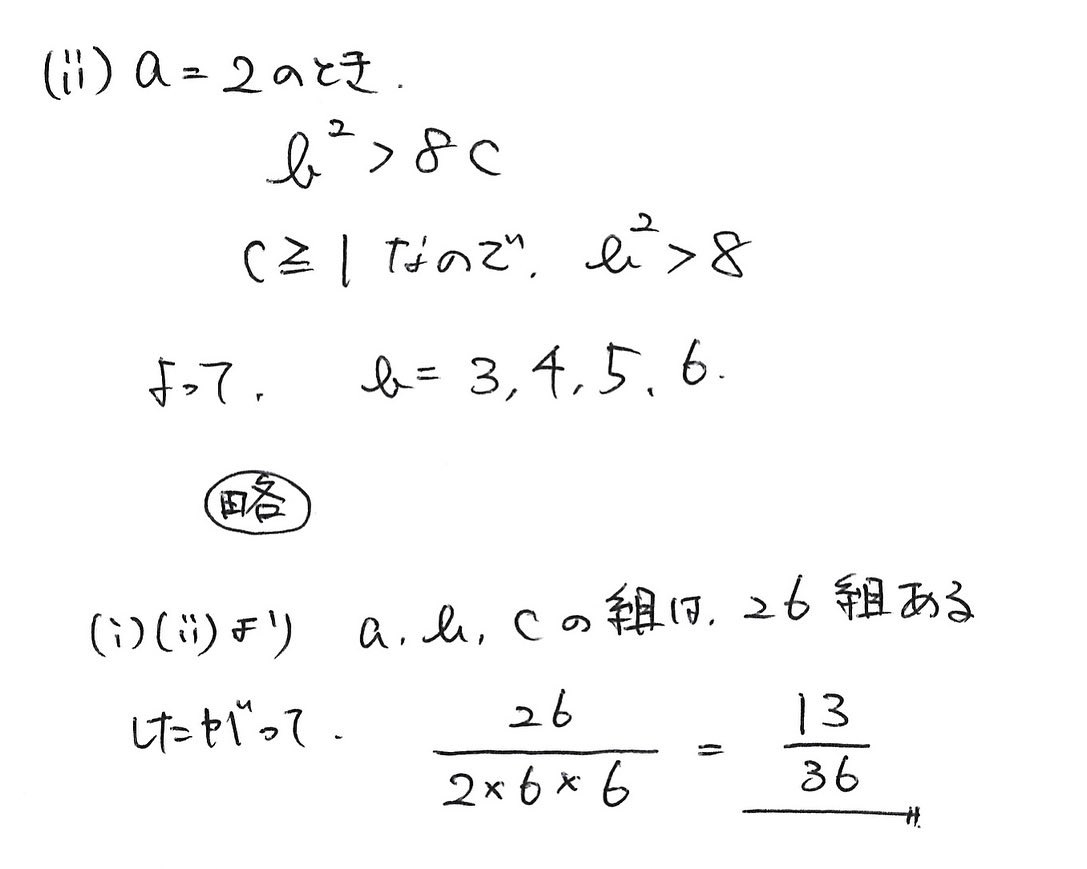 (ii) a = 2 のとき.
b² > 8c
c ≧ 1 なので, b² > 8
よって, b = 3, 4, 5, 6.
略
(i)(ii)より a, b, c の組は, 26 組ある
したがって, 26/(2×6×6) = 13/36